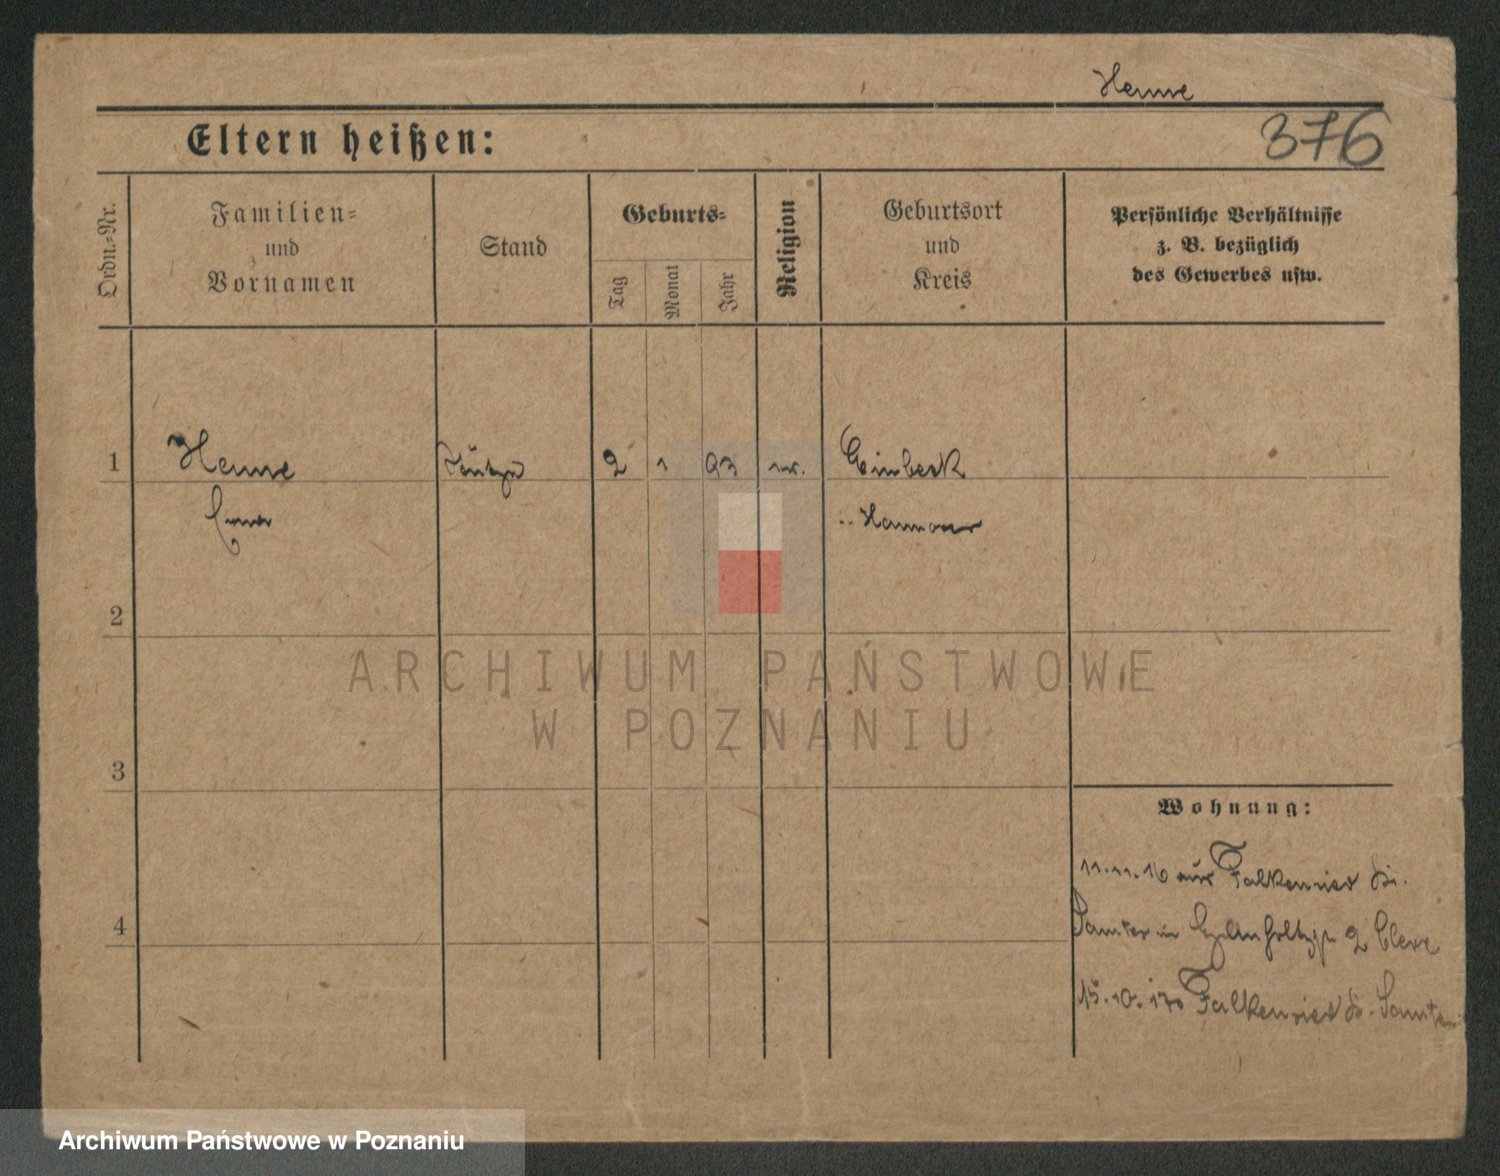 Henne
Eltern heißen:
376
Ordn.-Nr.
Familien-
und
Vornamen
Stand
Geburts-
Tag
Monat
Jahr
Religion
Geburtsort
und
Kreis
Persönliche Verhältnisse
z. B. bezüglich
des Gewerbes usw.
1
Henne
2
1
93
Einbeck
Hannover
2
ARCHIWUM PAŃSTWOWE
W POZNANIU
3
Wohnung:
11.11.16 aus Falkenried Kr.
4
Samter in 2
15.10. Falkenried Kr. Samter
Archiwum Państwowe w Poznaniu